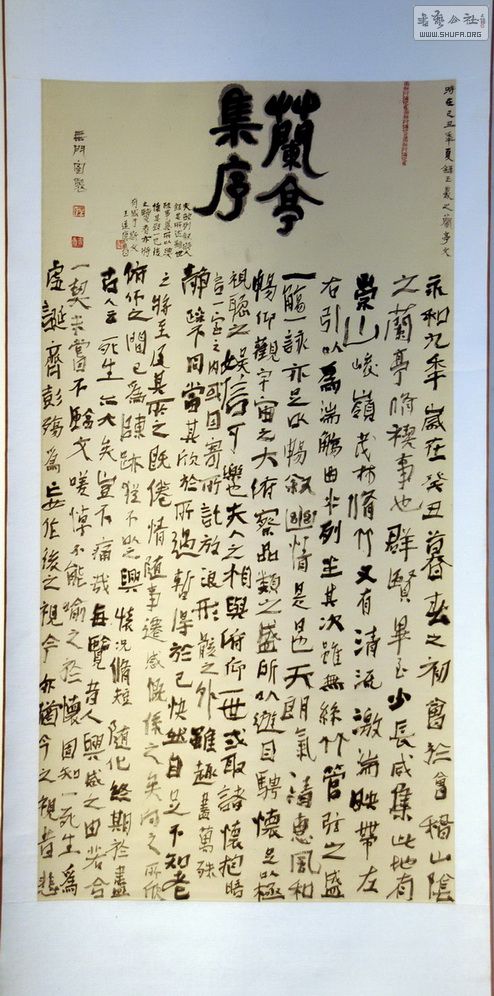 時在己丑年夏錄王羲之蘭亭文
蘭亭
集序
永和九年歲在癸丑暮春之初會於會稽山陰
之蘭亭脩禊事也群賢畢至少長咸集此地有
崇山峻嶺茂林脩竹又有清流激湍映帶左
右引以為湍觴曲水列坐其次雖無絲竹管弦之盛
一觴一詠亦足以暢敘幽情是日也天朗氣清惠風和
暢仰觀宇宙之大俯察品類之盛所以遊目騁懷足以極
視聽之娛信可樂也夫人之相與俯仰一世或取諸懷抱晤
言一室之內或因寄所託放浪形骸之外雖趣萬殊
靜躁不同當其欣於所遇暫得於己快然自足不知老
之將至及其所之既倦情隨事遷感慨係之矣向之所欣
俯仰之間已為陳跡猶不以之興情況脩短隨化終期於盡
古人云死生亦大矣豈不痛哉每覽昔人興感之由若合
一契未嘗不臨文嗟悼不能喻之於懷固知一死生為
虛誕齊彭殤為妄作後之視今亦猶今之視昔悲
夫故列敘時人
錄其所述雖世
殊事異所以興
懷其致一也後
之覽者亦將
有感於斯文
書藝公社
WWW.SHUFA.ORG